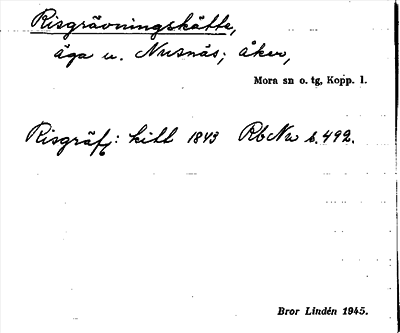 Risgrävningskätte,
äga u. Nusnäs; åker,
Mora sn o. tg, Kopp. l.
Risgräf: kitt 1843 RbNu s. 492.
Bror Lindén 1945.